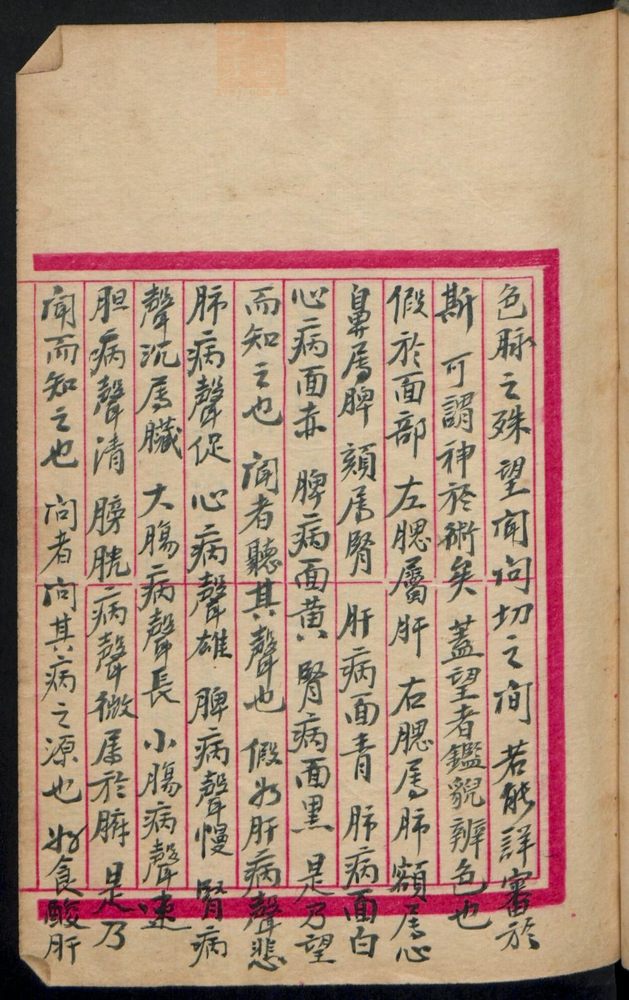 色脉之殊望闻问切之间若能詳審於
斯可謂神於術矣蓋望者鑑貌辨色也
假於面部左腮屬肝右腮属肺額属心
鼻属脾頦属腎肝病面青肺病面白
心病面赤脾病面黄腎病面黑是乃望
而知之也闻者聽其聲也假如肝病聲悲
肺病聲促心病聲雄脾病聲慢腎病
聲沉属臟大腸病聲長小腸病聲速
胆病聲清膀胱病聲微属於腑是乃
闻而知之也问者问其病之源也如食酸肝